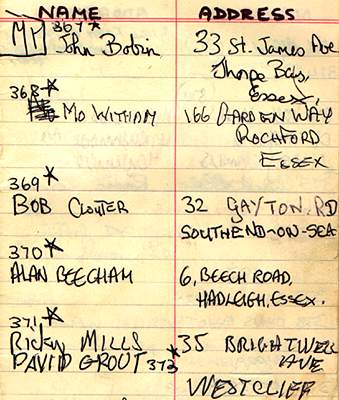 NAME ADDRESS
MM 367* John Bobin 33 St. James Ave
Thorpe Bay,
Essex,
368*
Mo WITHAM 166 GARDEN WAY
ROCHFORD
ESSEX
369*
BOB CLOUTER 32 GAYTON. RD
SOUTHEND-ON-SEA
370*
ALAN BEECHAM 6, BEECH ROAD,
HADLEIGH, ESSEX.
371*
RICKY MILLS 35 BRIGHTWELL
DAVID GROUT 372* AVE
WESTCLIFF